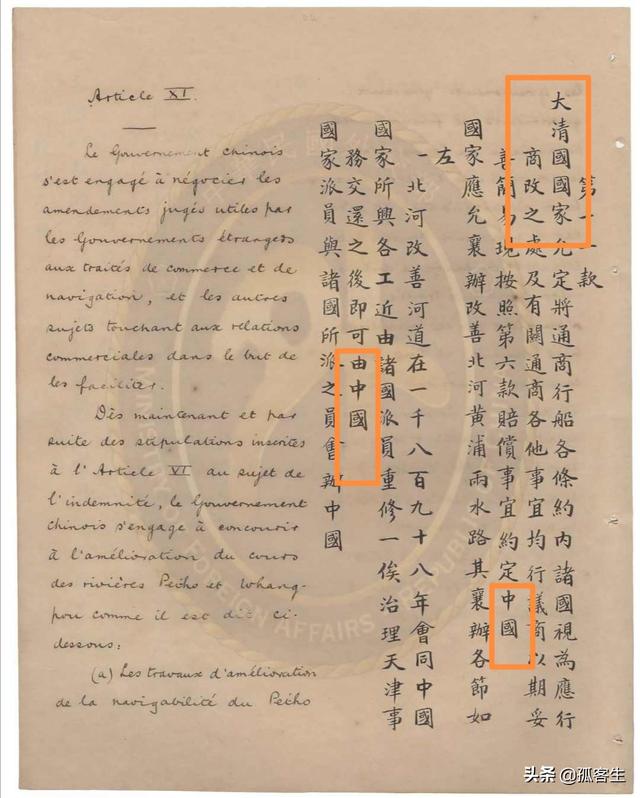 Article XI.
Le Gouvernement chinois
s'est engagé à négocier les
amendements jugés utiles par
les Gouvernements étrangers
aux traités de commerce et de
navigation, et les autres
sujets touchant aux relations
commerciales dans le but de
les faciliter.
Dès maintenant et par
suite des stipulations inscrites
à l'Article VI au sujet de
l'indemnité, le Gouvernement
chinois s'engage à concourir
à l'amélioration du cours
des rivières Peïho et Whang-
pou comme il est dit ci-
dessous:
(a) Les travaux d'amélioration
de la navigabilité du Peïho
第十一款
大清國國家允定將通商行船各條約內諸國視為應行
商改之處及有關通商各他事宜均行議商以期妥
善簡易現按照第六款賠償事宜約定中國
國家應允襄辦改善北河黃浦兩水路其襄辦各節如
左
一北河改善河道在一千八百九十八年會同中國
國家所興各工近由諸國派員重修一俟治理天津事
務交還之後即可由中國
國家派員與諸國所派之員會辦中國
FOREIGN AFFAIRS
头条 @孤客生